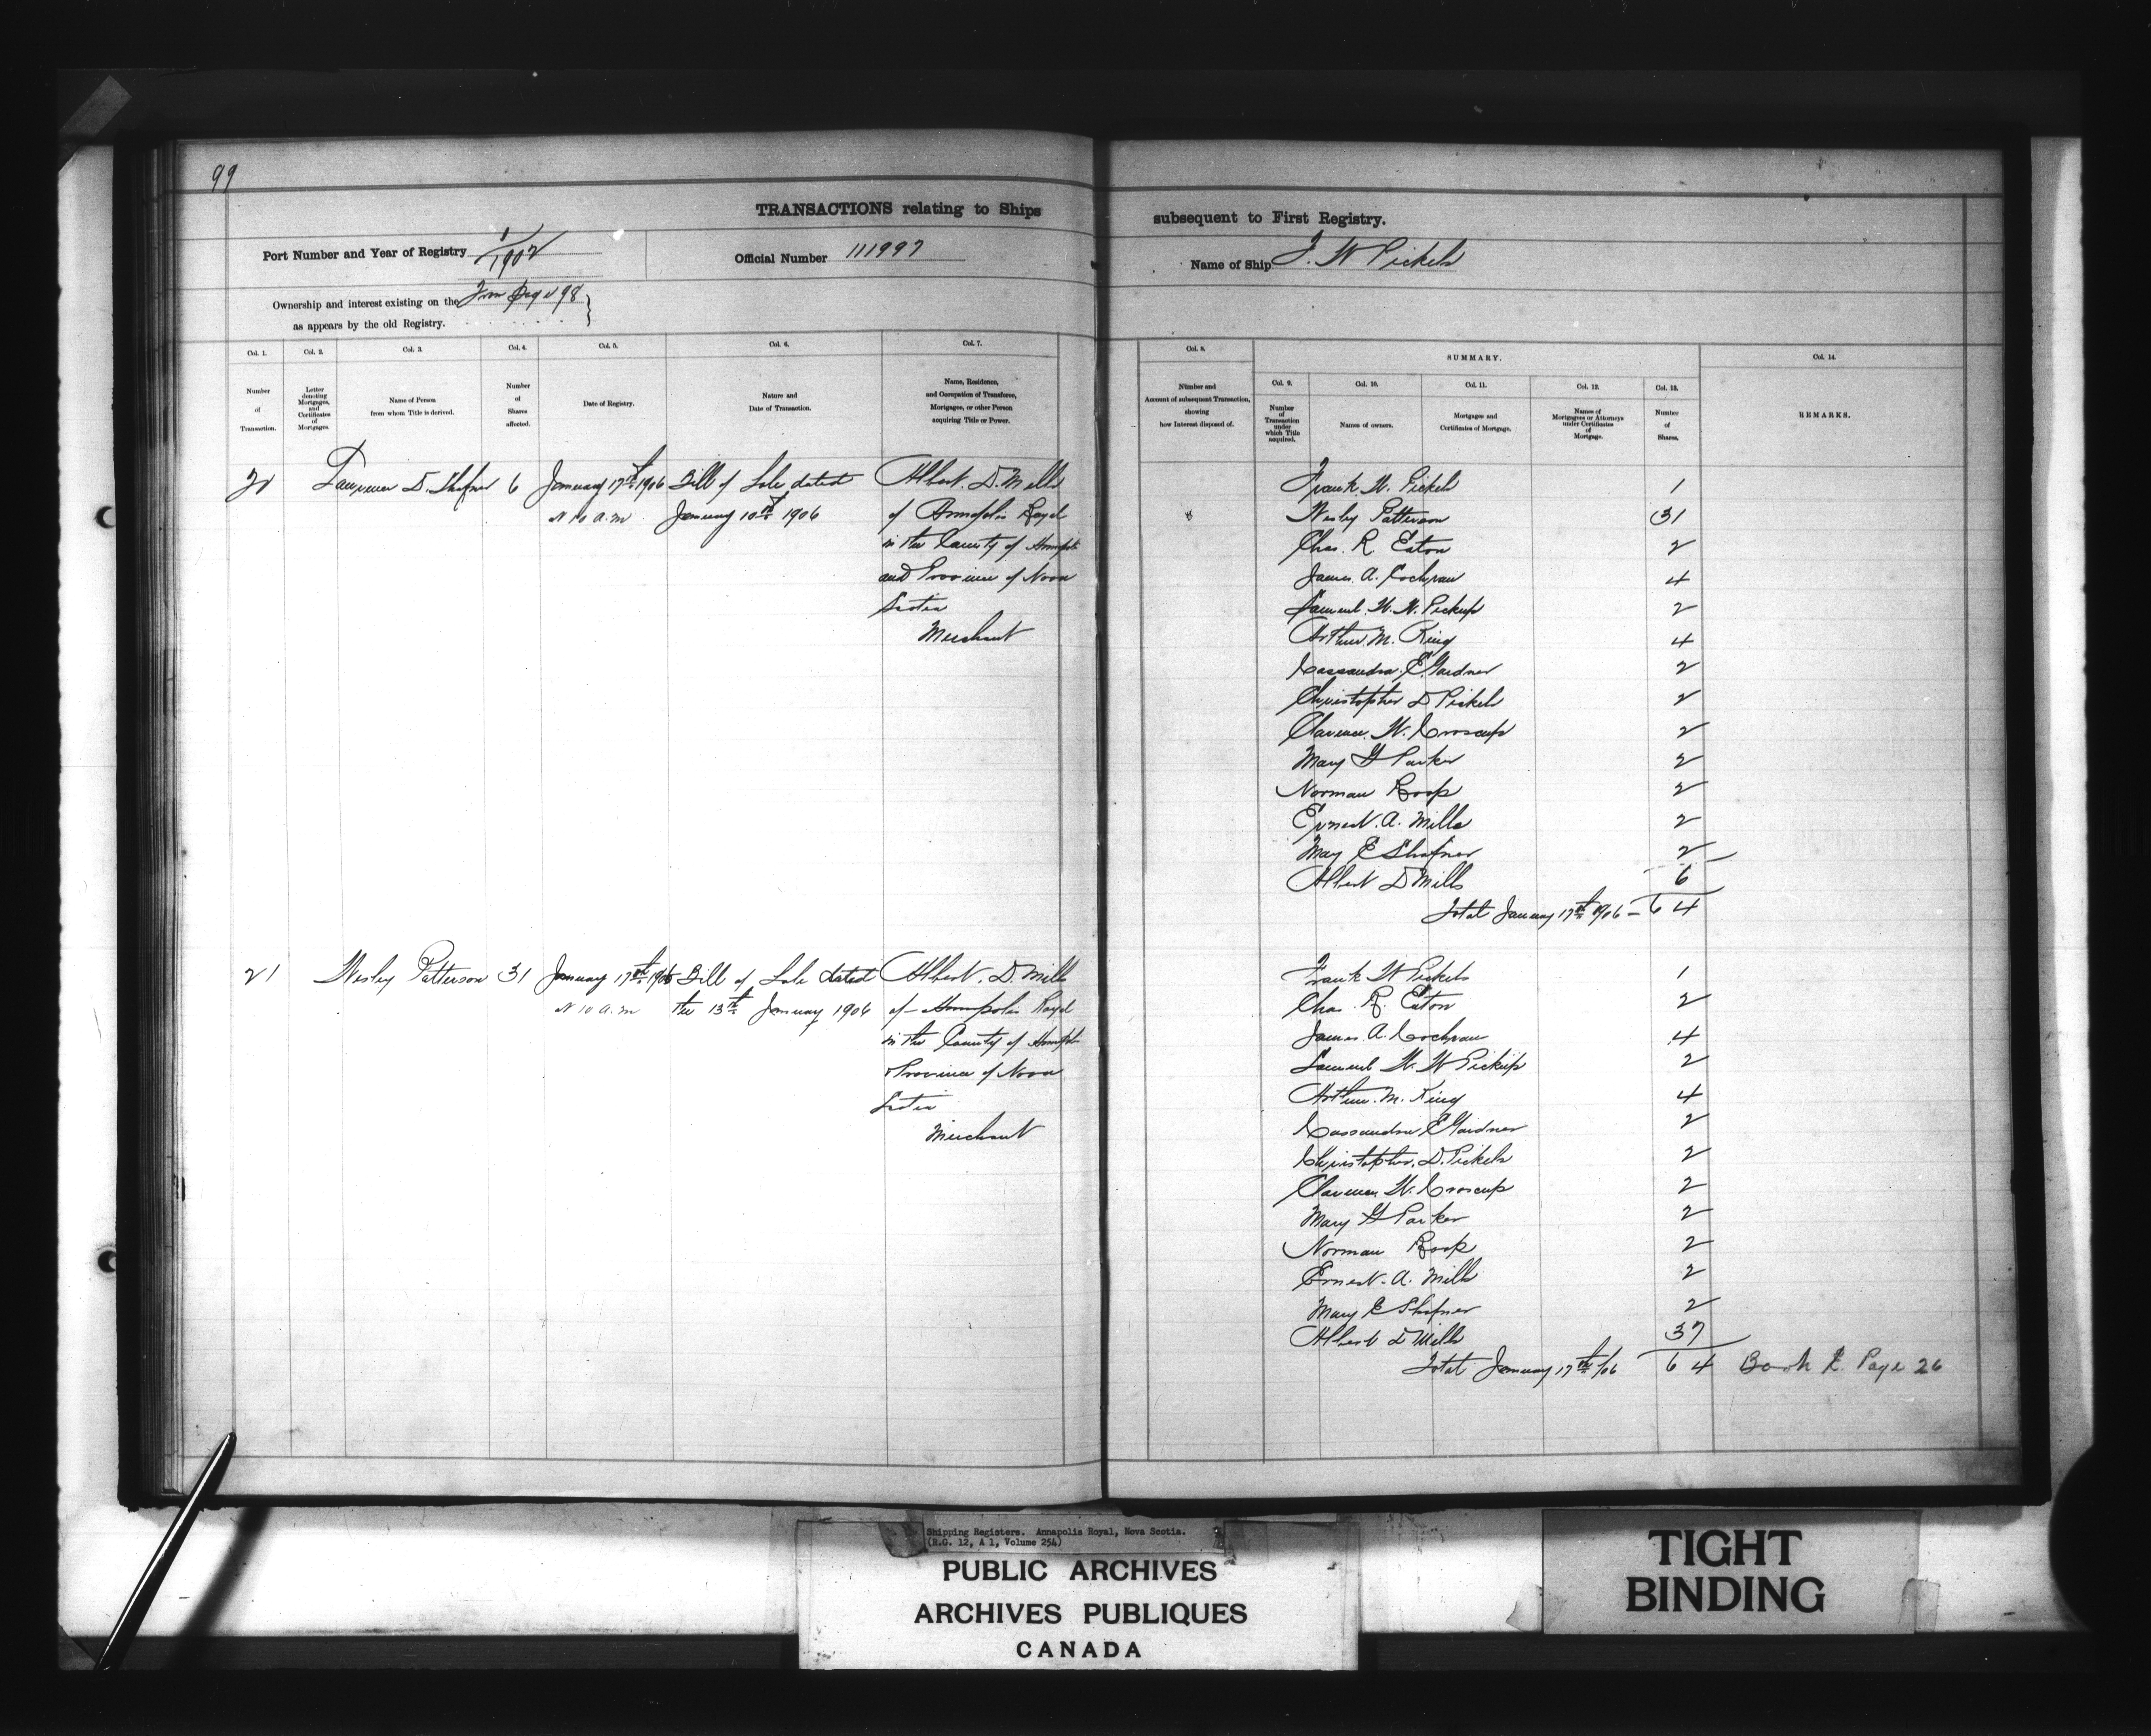 99
TRANSACTIONS relating to Ships subsequent to First Registry.
Port Number and Year of Registry 1/1902 Official Number 111997 Name of Ship F. W Pickels
Ownership and interest existing on the From Page 98
as appears by the old Registry.
Col. 1. Col. 2. Col. 3. Col. 4. Col. 5. Col. 6. Col. 7. Col. 8. SUMMARY. Col. 14.
Number of Transaction.
Letter denoting Mortgages, and Certificates of Mortgages.
Name of Person from whom Title is derived.
Number of Shares affected.
Date of Registry.
Nature and Date of Transaction.
Name, Residence, and Occupation of Transferee, Mortgagee, or other Person acquiring Title or Power.
Number and Account of subsequent Transaction, showing how Interest disposed of.
Col. 9. Col. 10. Col. 11. Col. 12. Col. 13.
Number of Transaction under which Title acquired.
Names of owners.
Mortgages and Certificates of Mortgage.
Names of Mortgagees or Attorneys under Certificates of Mortgage.
Number of Shares.
REMARKS.
20 Lawrence D. Shafner 6 January 17th 1906 Bill of Sale dated Albert. D. Mills
at 10 a.m January 10th 1906 of Annapolis Royal
in the County of Annapolis
and Province of Nova
Scotia
Merchant
Frank. W. Pickels 1
Wesley Patterson 31
Chas. R Eaton 2
James. A. Cochran 4
Samuel. W. W. Pickup 2
Arthur M. King 4
Cassandra. E Gardner 2
Christopher D Pickels 2
Clarence. W. Croscup 2
Mary G Parker 2
Norman Roop 2
Ernest. A. Mills 2
May E Shafner 2
Albert D Mills 6
Total January 17th 1906 - 64
21 Wesley Patterson 31 January 17th 1906 Bill of Sale dated Albert. D. Mills
at 10 a.m the 13th January 1906 of Annapolis Royal
in the County of Annapolis
& Province of Nova
Scotia
Merchant
Frank W Pickels 1
Chas. R. Eaton 2
James. A. Cochran 4
Samuel W. W Pickup 2
Arthur. M. King 4
Cassandra E Gardner 2
Christopher. D. Pickels 2
Clarence W. Croscup 2
Mary G Parker 2
Norman Roop 2
Ernest. A. Mills 2
Mary E Shafner 2
Albert D Mills 37
Total January 17th /06 64 Book Page 26
Shipping Registers. Annapolis Royal, Nova Scotia.
(R.G. 12, A 1, Volume 254)
PUBLIC ARCHIVES
ARCHIVES PUBLIQUES
CANADA
TIGHT
BINDING